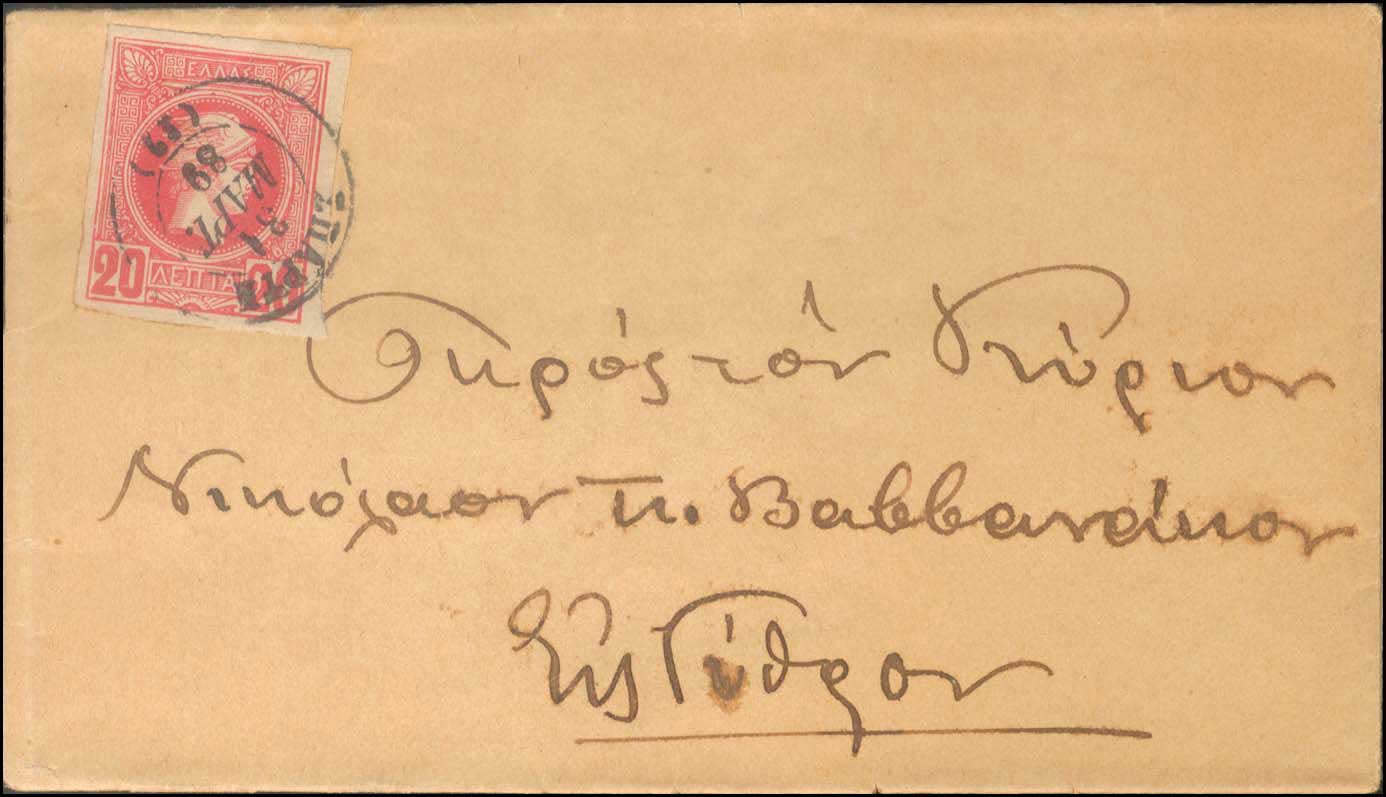 ΕΛΛΑΣ
20 ΛΕΠΤΑ 20
ΣΠΑΡΤΗ
21
ΜΑΡΤ.
89
(68)
Πρός τὸν Κύριον
Νικόλαον Π. Βαββανάκον
Εἰς Γύθειον